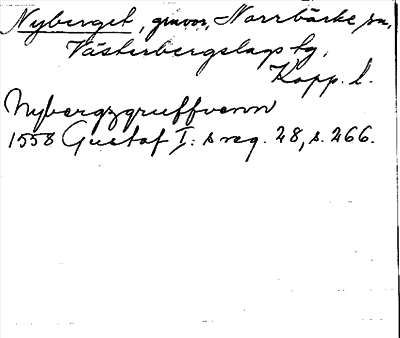 Nyberget, gruvor, Norrbärke sn,
Västerbergslags tg,
Kopp. l.
Nybergzgruffvenn
1558 Gustaf I: s reg. 28, s. 266.